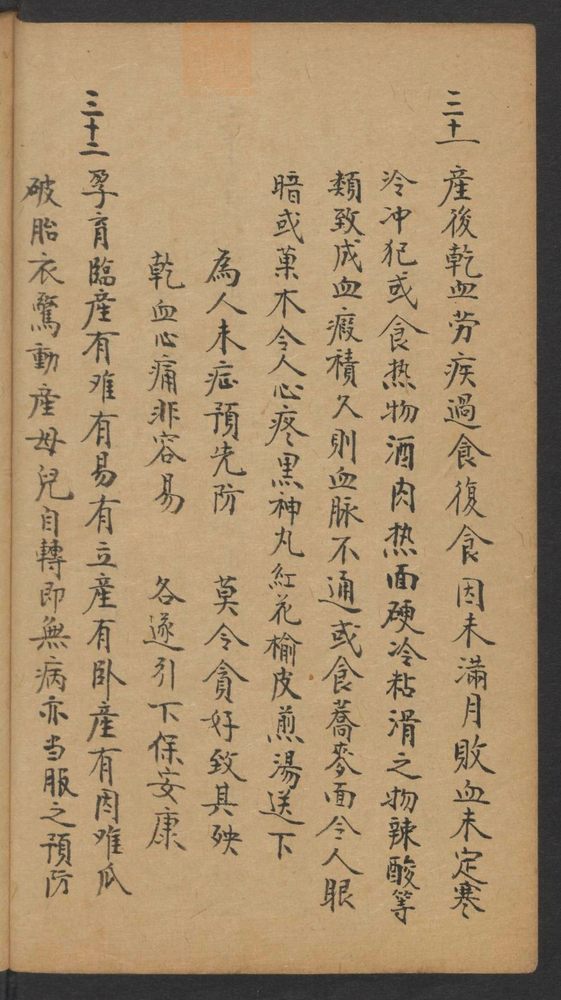 三十一 產後乾血劳疾過食復食因未滿月敗血未定寒
冷冲犯或食热物酒肉热面硬冷粘滑之物辣酸等
類致成血瘕積久則血脉不通或食蕎麥面令人眼
暗或菓木令人心疼黑神丸紅花榆皮煎湯送下
為人未症預先防 莫令貪好致其殃
乾血心痛非容易 各逐引下保安康
三十二 孕育臨產有难有易有立產有卧產有因难瓜
破胎衣驚動產母兒自轉即無病亦当服之預防